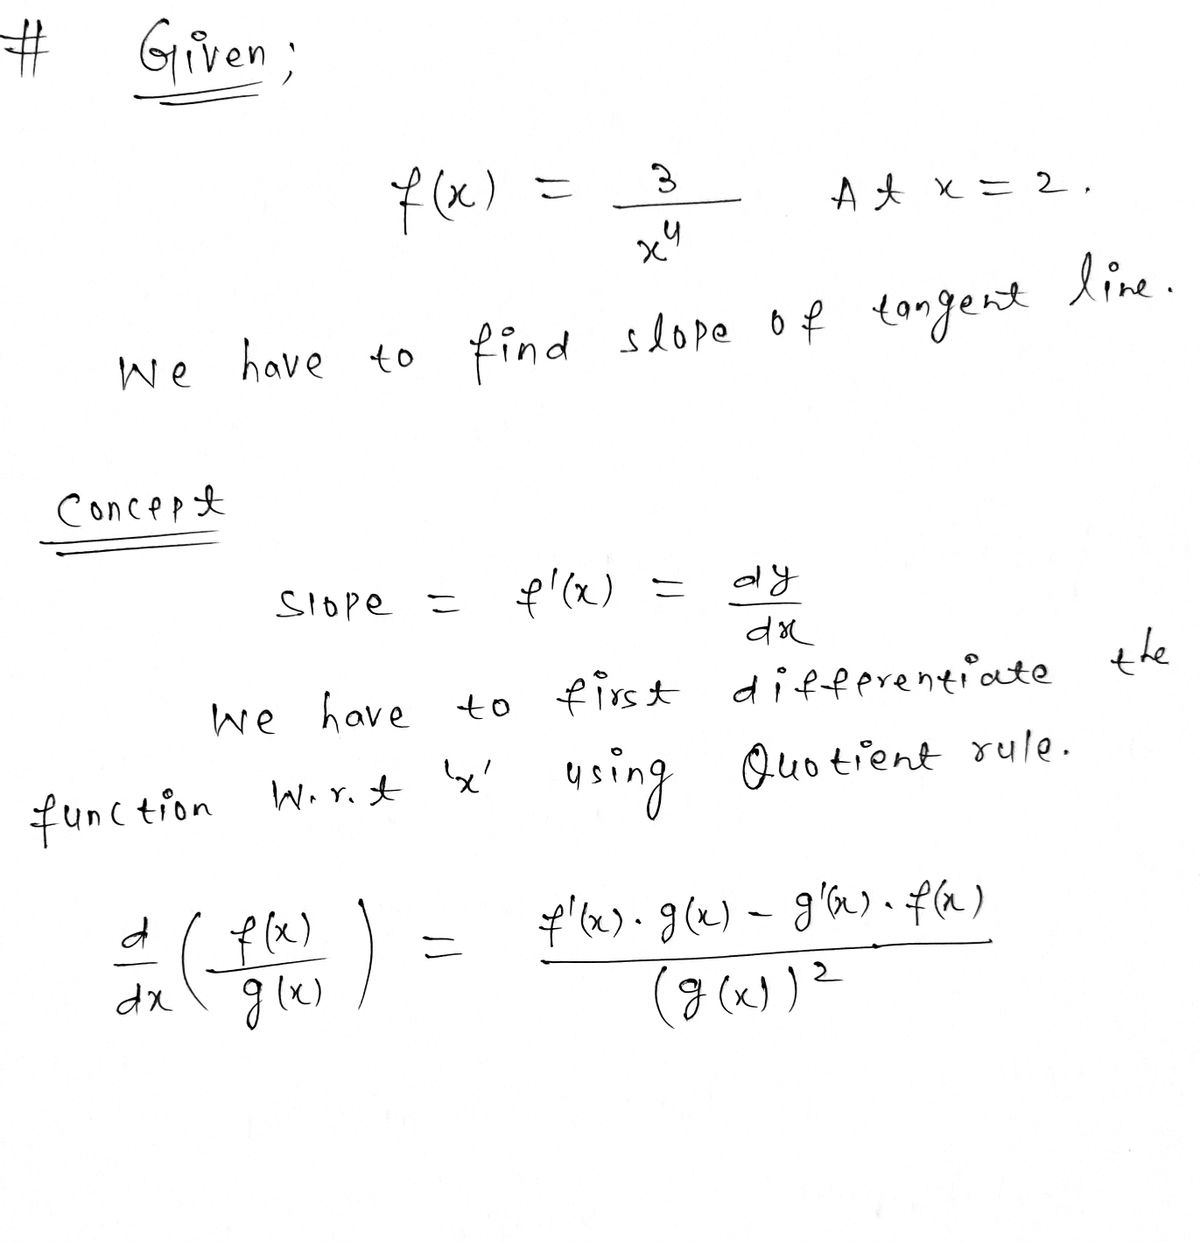 # Given;
f(x) = 3/x⁴ At x = 2.
We have to find slope of tangent line.
Concept
Slope = f'(x) = dy/dx
We have to first differentiate the
function W.r.t 'x' using Quotient rule.
d/dx (f(x)/g(x)) = (f'(x) . g(x) - g'(x) . f(x))/(g(x))²